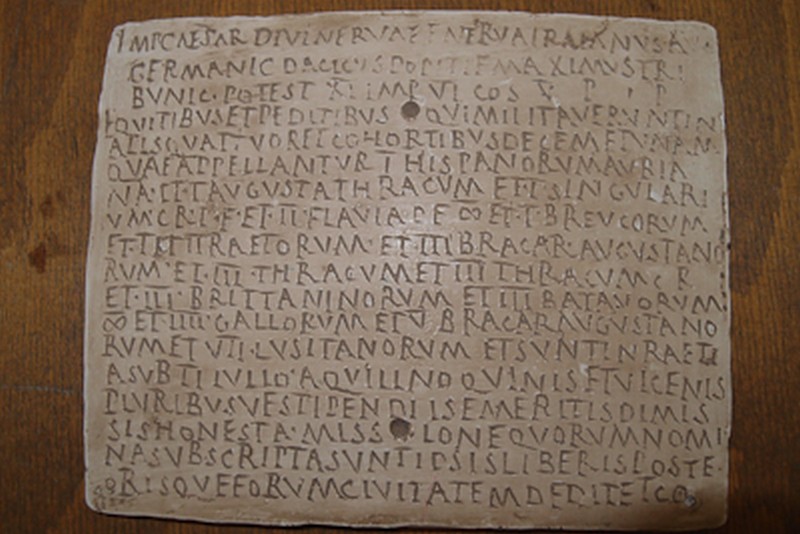 IMP CAESAR DIVI NERVAE F NERVA TRAIANVS A
GERMANIC DACICVS PONTIF MAXIMVS TRI
BVNIC·POTEST XI IMP VI COS V P P
EQVITIBVS ET PEDITIBVS QVI MILITAVERVNT IN
ALIS QVATTVOR ET COHORTIBVS DECEM ET VNA
QVAE APPELLANTVR I HISPANORVM AVRIA
NA·ET I AVGVSTA THRACVM ET I SINGVLARI
VM C R P F·ET·II FLAVIA P F ∞ ET·I·BREVCORVM
ET·I ET II RAETORVM ET III BRACAR·AVGVSTANO
RVM·ET·III·THRACVM ET III THRACVM C R
ET·III·BRITTANNORVM ET IIII BATAVORVM
∞ ET IIII·GALLORVM ET V BRACARAVGVSTANO
RVM ET VII·LVSITANORVM ET SVNT IN RAETI
A SVB TI IVLIO·AQVILINO QVINIS ET VICENIS
PLVRIBVSVE STIPENDIIS EMERITIS DIMIS
SIS HONESTA·MISSIONE QVORVM NOMI
NA SVBSCRIPTA SVNT IPSIS LIBERIS POSTE
RISQVE EORVM CIVITATEM DEDIT ET CO